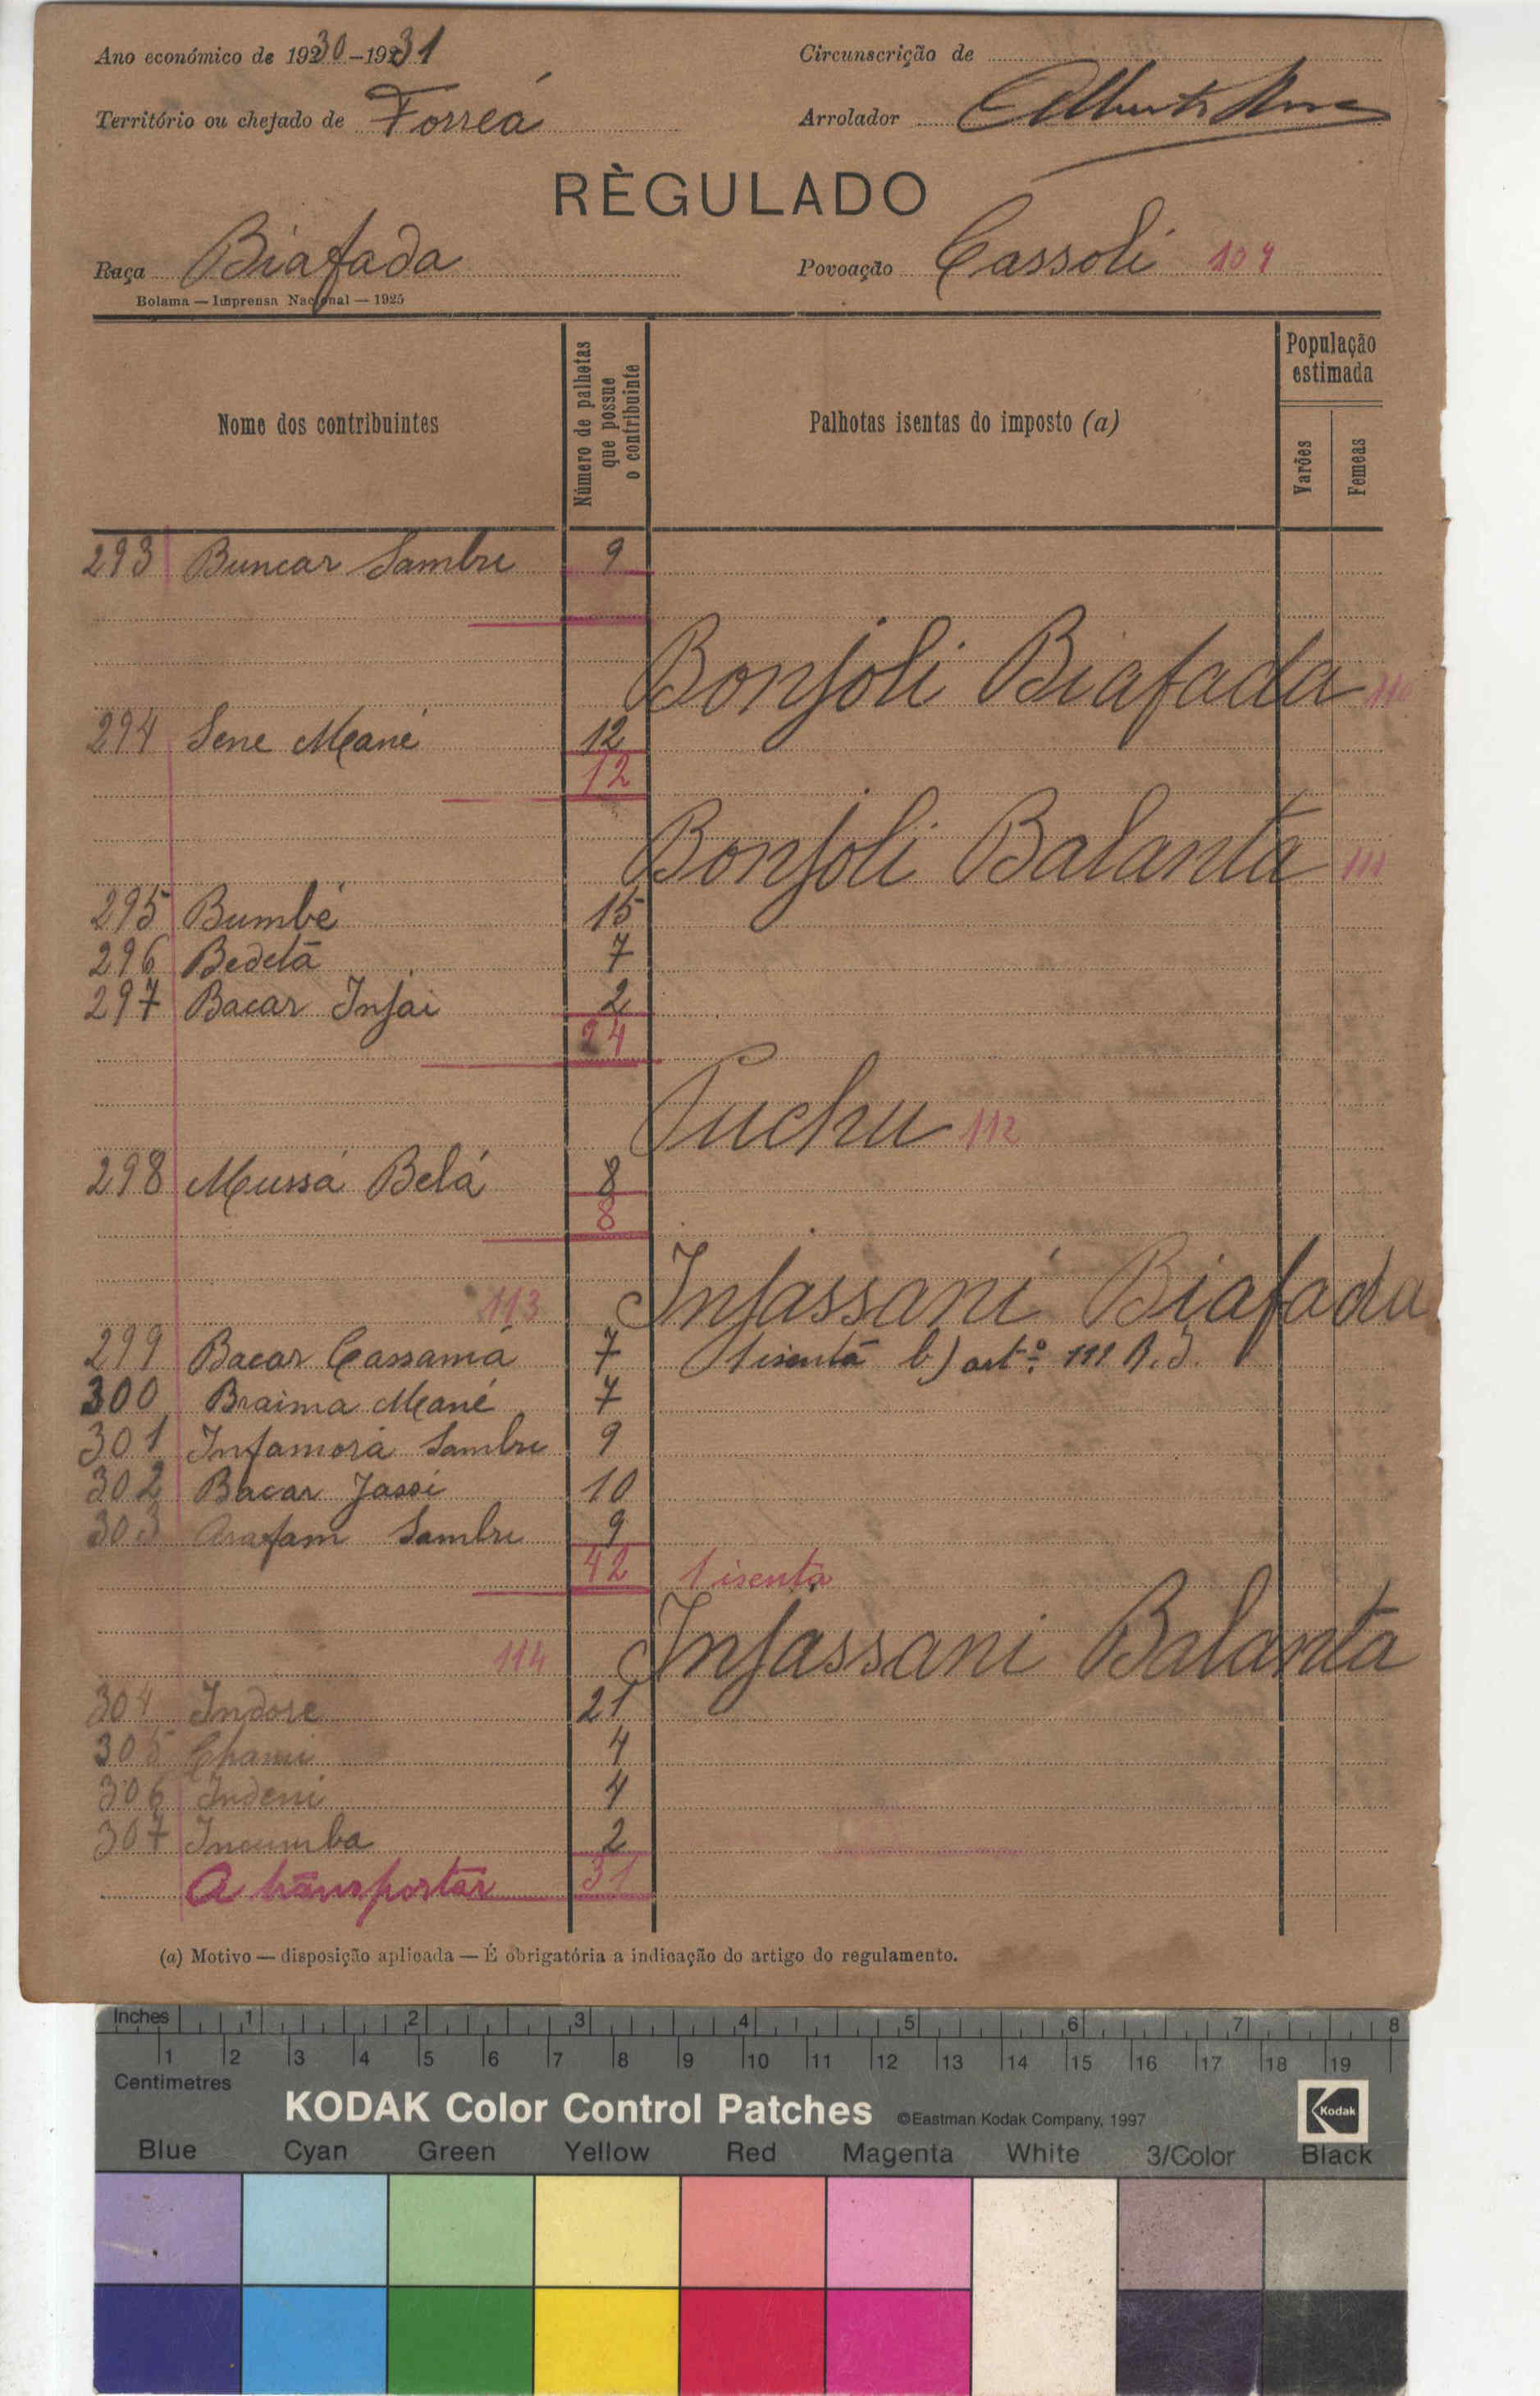 Ano económico de 1930-1931
Circunscrição de
Território ou chefado de Forreá
Arrolador
RÈGULADO
Raça Biafada
Povoação Cassoli 109
Bolama — Imprensa Nacional — 1925
Nome dos contribuintes
Número de palhetas que possue o contribuinte
Palhotas isentas do imposto (a)
População estimada
Varões
Femeas
293 Buncar Sambu 9
Bonjoli Biafada 110
294 Sene Mané 12
12
Bonjoli Balanta 111
295 Bumbé 15
296 Bedetà 7
297 Bacar Injai 2
24
Tuchu 112
298 Mussá Belá 8
8
113 Injassani Biafada
299 Bacar Cassamá 7 1 isenta b) artº 111 R. I.
300 Braima Mané 7
301 Infamorá Sambu 9
302 Bacar Jassi 10
303 Arafam Sambu 9
42 1 isenta
114 Injassani Balanta
304 Indore 21
305 4
306 Indeni 4
307 Incumba 2
A transportar 31
(a) Motivo — disposição aplicada — É obrigatória a indicação do artigo do regulamento.
Inches 1 2 3 4 5 6 7 8
1 2 3 4 5 6 7 8 9 10 11 12 13 14 15 16 17 18 19
Centimetres
KODAK Color Control Patches ©Eastman Kodak Company, 1997 Kodak
Blue Cyan Green Yellow Red Magenta White 3/Color Black